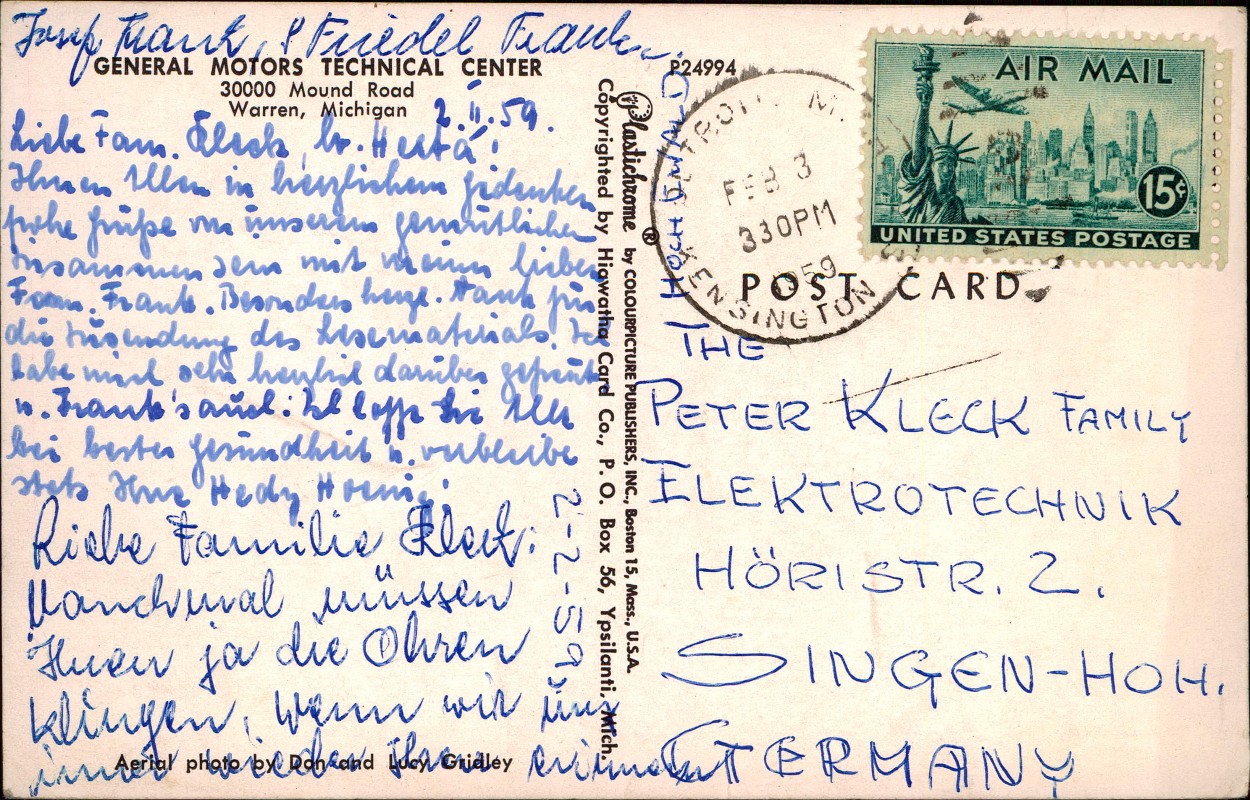 Josef Frank, & Friedel Frank
GENERAL MOTORS TECHNICAL CENTER
30000 Mound Road
Warren, Michigan
2.II.59.
Liebe Fam. Kleck, Herta!
Ihnen Allen in herzlichem Gedenken
frohe Grüße von unserem gemütlichen
Zusammen sein mit meinen lieben
Fam. Frank. Besonders herzl. Dank für
die Zusendung des Lesematerials. Ich
habe mich sehr herzlich darüber gefreut
u. Frank's auch. Ich hoffe Sie Alle
bei bester Gesundheit u. verbleibe
stets Ihre Hedy Hoenig
2-2-59
Liebe Familie Kleck:
Manchmal müssen
Ihnen ja die Ohren
klingen, wenn wir uns
immer wieder Ihrer erinnern
Aerial photo by Don and Lucy Gridley
Plastichrome ® by COLOURPICTURE PUBLISHERS, INC., Boston 15, Mass., U.S.A.
Copyrighted by Hiawatha Card Co., P. O. Box 56, Ypsilanti, Mich.
P24994
DETROIT M.
FEB 3
330PM
1959
KENSINGTON
AIR MAIL
15¢
UNITED STATES POSTAGE
POST CARD
THE
PETER KLECK FAMILY
ELEKTROTECHNIK
HÖRISTR. 2.
SINGEN-HOH.
GERMANY
HOCHENWALD